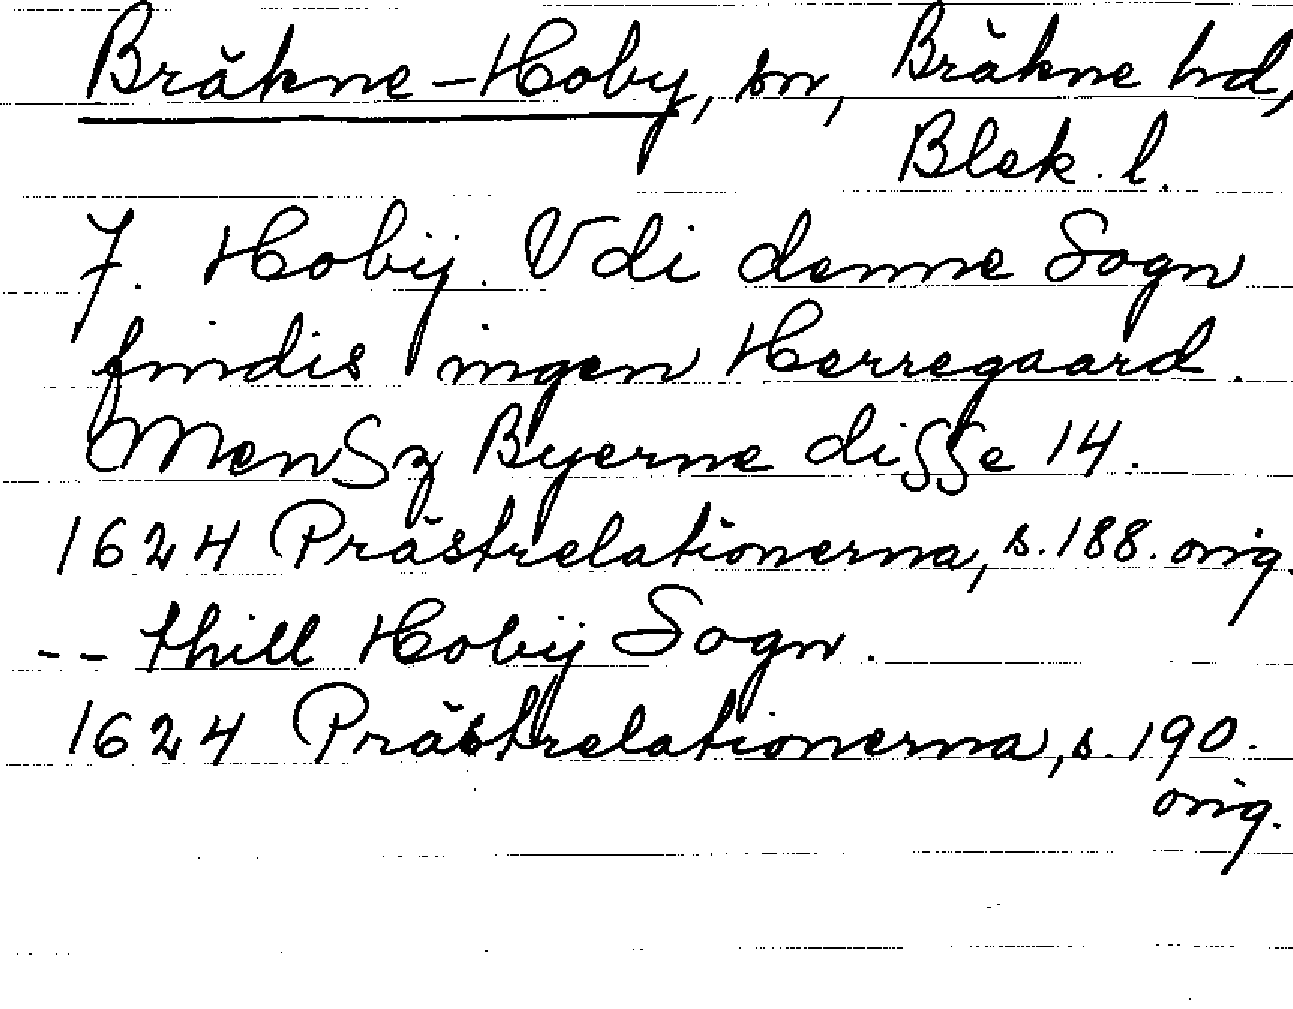 Bräkne-Hoby, sn, Bräkne hd,
Blek. l.
7. Hobÿ. Vdi denne Sogn
findis ingen Herregaard.
Men Byerne disse 14.
1624 Prästrelationerna, s. 188. orig.
-- thill Hobÿ Sogn.
1624 Prästrelationerna, s. 190.
orig.